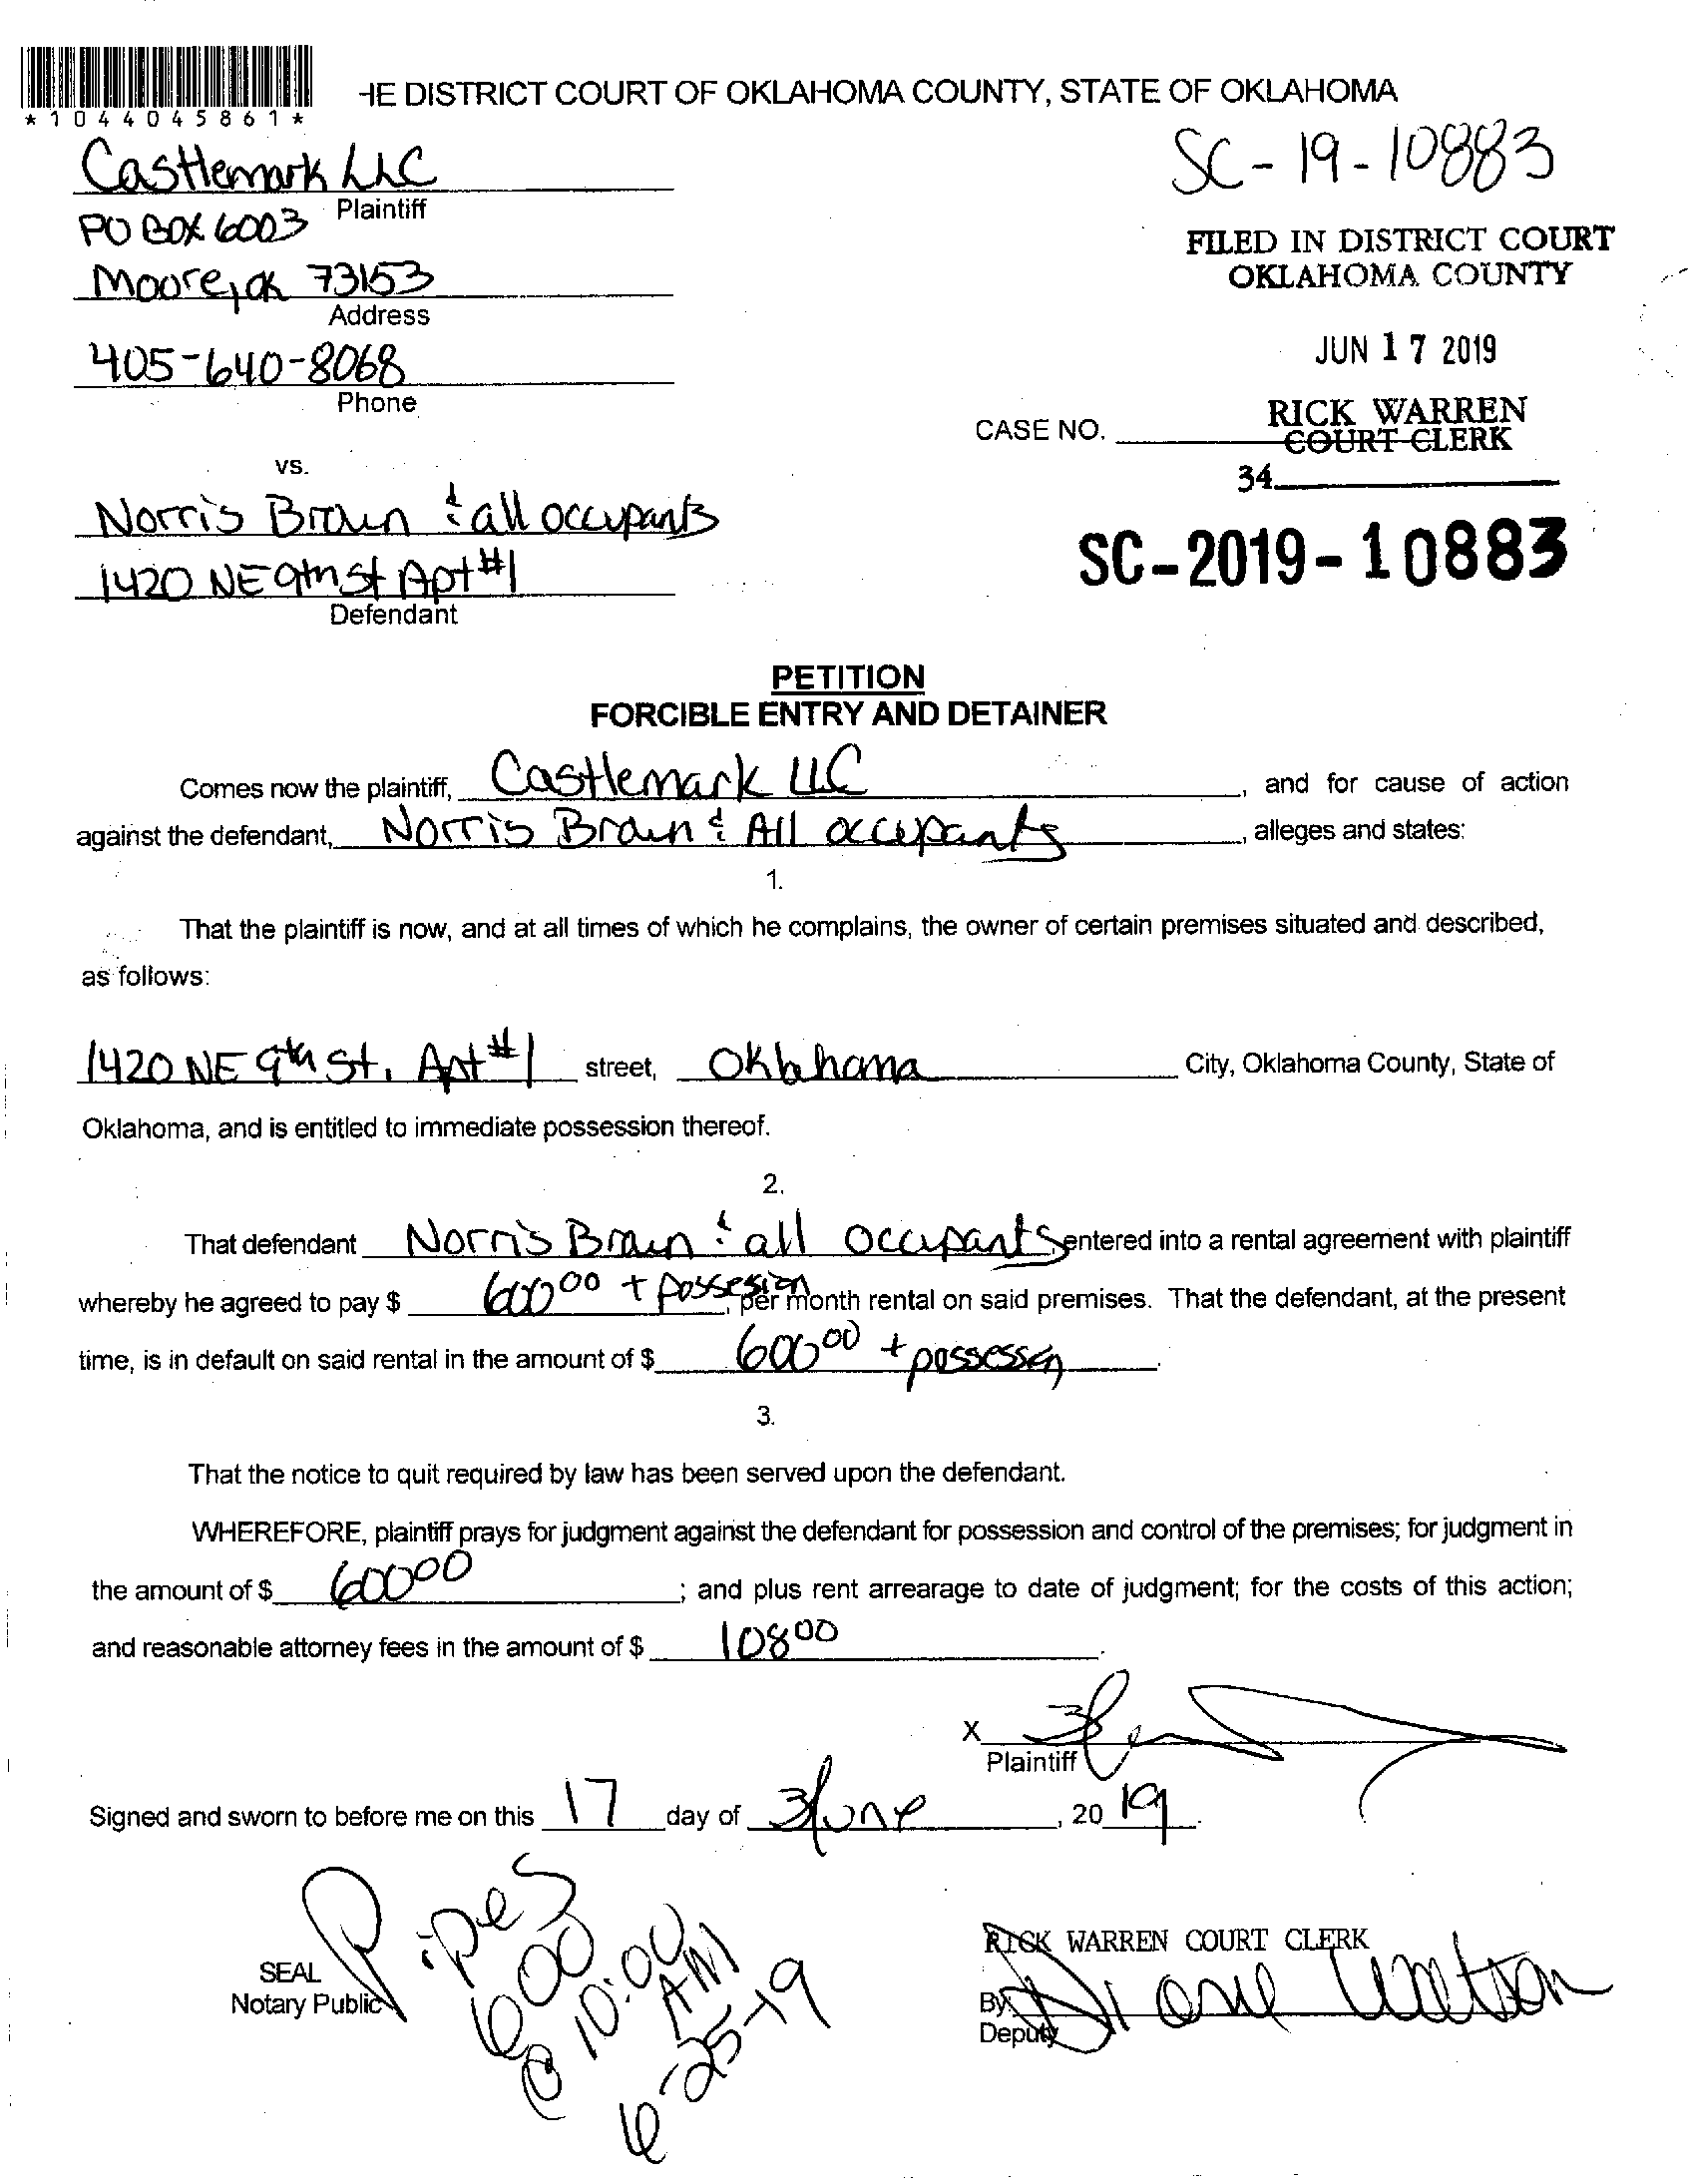 HE DISTRICT COURT OF OKLAHOMA COUNTY, STATE OF OKLAHOMA
*1044045861*
Castlemark LLC
Plaintiff
SC-19-10883
PO BOX 6003
Moore, OK 73153
Address
FILED IN DISTRICT COURT
OKLAHOMA COUNTY
405-640-8068
Phone
JUN 17 2019
CASE NO.
RICK WARREN
COURT CLERK
vs.
34
Norris Brown & all occupants
1420 NE 9th St Apt #1
Defendant
SC-2019-10883
PETITION
FORCIBLE ENTRY AND DETAINER
Comes now the plaintiff, Castlemark LLC, and for cause of action
against the defendant, Norris Brown & All occupants, alleges and states:
1.
That the plaintiff is now, and at all times of which he complains, the owner of certain premises situated and described,
as follows:
1420 NE 9th St. Apt #1 street, Oklahoma City, Oklahoma County, State of
Oklahoma, and is entitled to immediate possession thereof.
2.
That defendant Norris Brown & all occupants entered into a rental agreement with plaintiff
whereby he agreed to pay $ 600 00 + possesion, per month rental on said premises. That the defendant, at the present
time, is in default on said rental in the amount of $ 600 00 + possession.
3.
That the notice to quit required by law has been served upon the defendant.
WHEREFORE, plaintiff prays for judgment against the defendant for possession and control of the premises; for judgment in
the amount of $ 600 00; and plus rent arrearage to date of judgment; for the costs of this action;
and reasonable attorney fees in the amount of $ 108 00.
X
Plaintiff
Signed and sworn to before me on this 17 day of June, 20 19.
SEAL
Notary Public
Pipes
600
@ 10:00
AM
6-25-19
RICK WARREN COURT CLERK
By:
Deputy